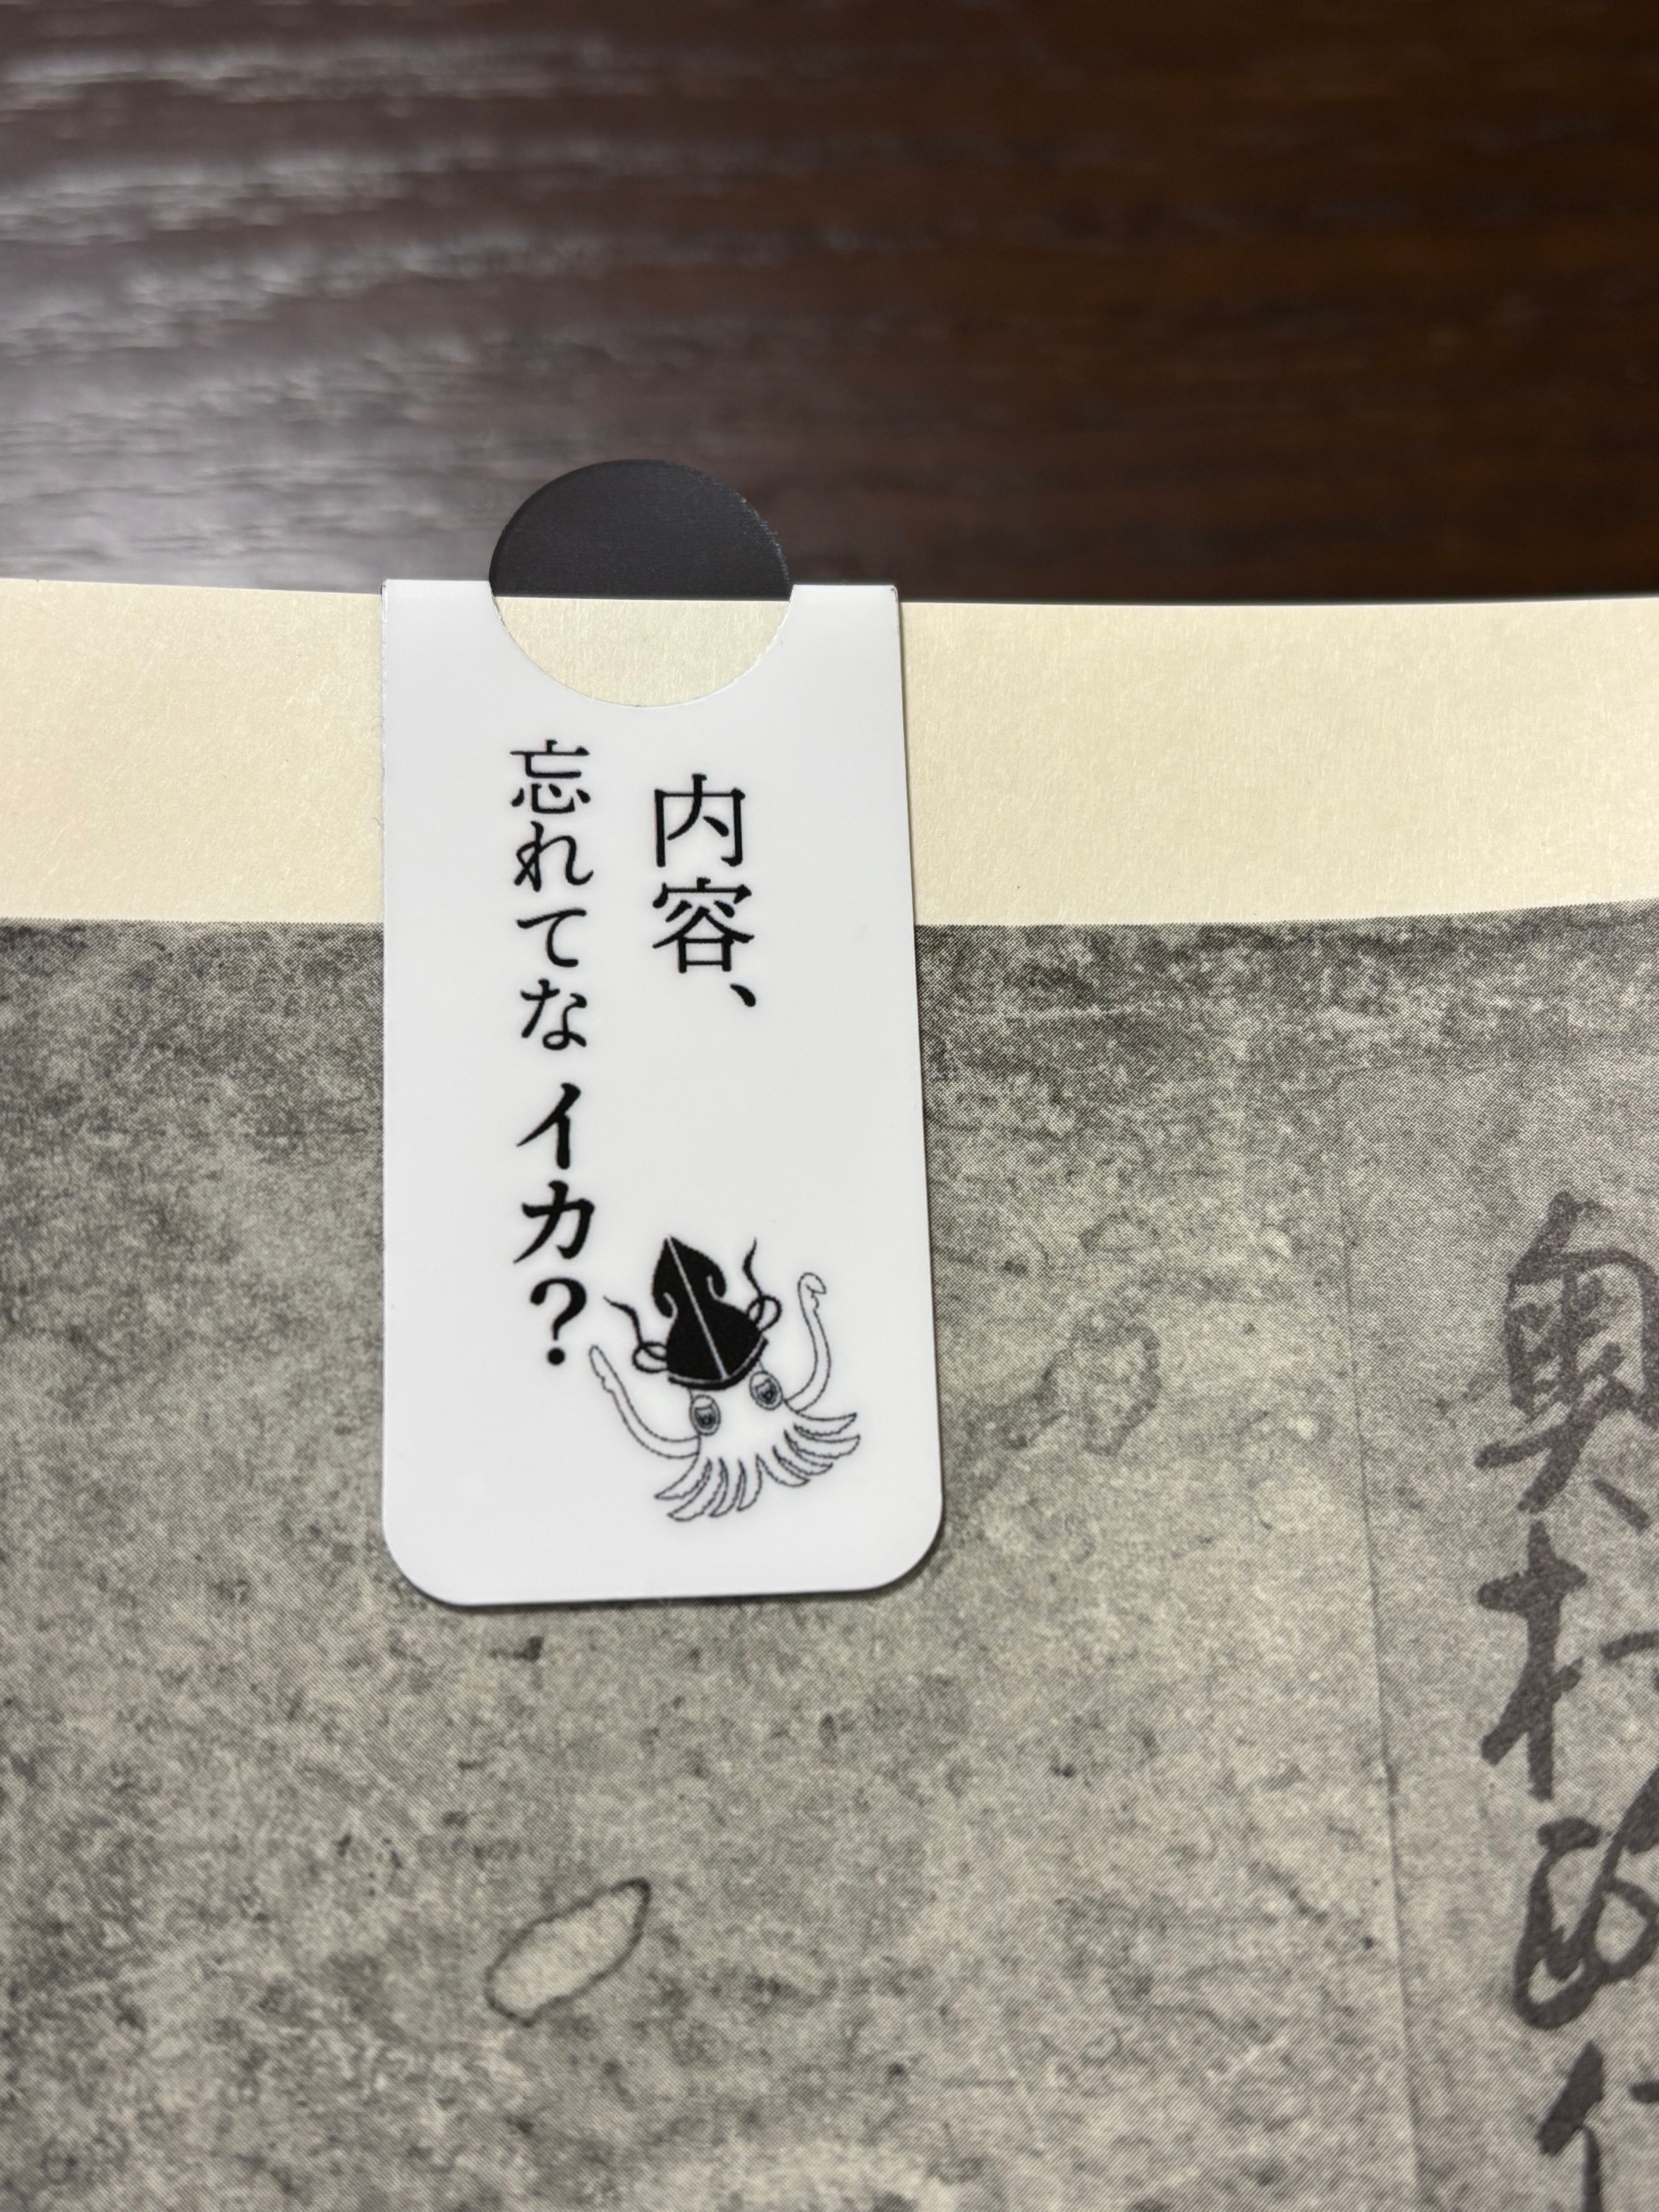 内容、
忘れてなイカ?
奥